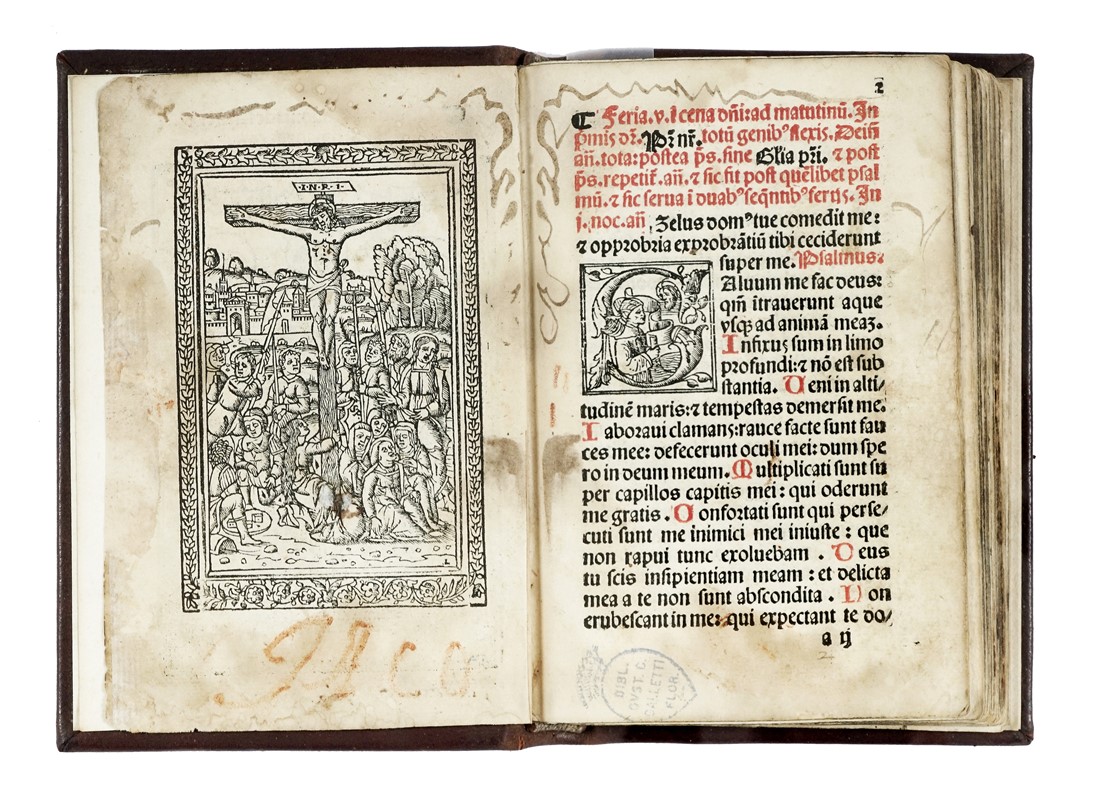 ·I·N·R·I·
2
¶ Feria. v. ĩ cena dñi: ad matutinũ. In
p̃mis dr̃. Pr̃ nr̃. totũ genibꝰ flexis. Deiñ
añ. tota: postea p̃s. sine Gl̃ia pr̃i. ⁊ post
p̃s. repetit̃. añ. ⁊ sic fit post quẽlibet psal
mũ. ⁊ sic serua ĩ duabꝰ seq̃ntibꝰ ferijs. In
j. noc. añ. Zelus domꝰ tue comedit me:
⁊ opprobria exprobrãtiũ tibi ceciderunt
super me. Psalmus:
SAluum me fac deus:
qm̃ ĩtrauerunt aque
vsqꝫ ad animã meaꝫ.
Infixus sum in limo
profundi: ⁊ nõ est sub
stantia. Ueni in alti/
tudinẽ maris: ⁊ tempestas demersit me.
Laboraui clamans: rauce facte sunt fau
ces mee: defecerunt oculi mei: dum spe
ro in deum meum. Multiplicati sunt su
per capillos capitis mei: qui oderunt
me gratis. Confortati sunt qui perse/
cuti sunt me inimici mei iniuste: que
non rapui tunc exoluebam. Deus
tu scis insipientiam meam: et delicta
mea a te non sunt abscondita. Non
erubescant in me: qui expectant te do/
a ij
BIBL.
GVST. C.
GALLETTI
FLOR.
L